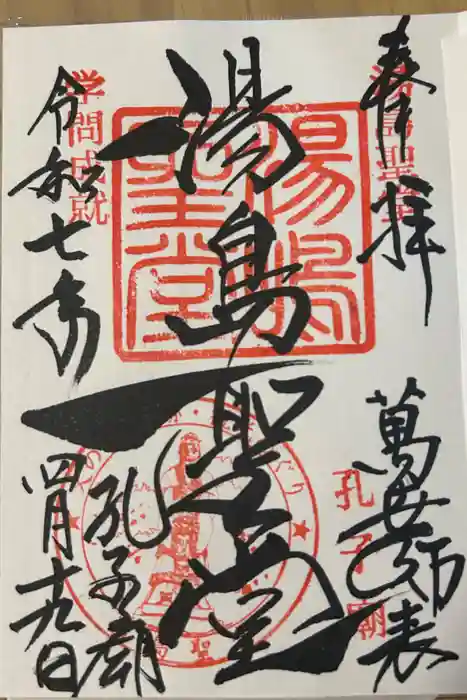 奉拝
湯島聖堂
萬世師表
孔子廟
湯島聖堂
湯島聖堂
孔子廟
学問成就
令和七年
四月十九日